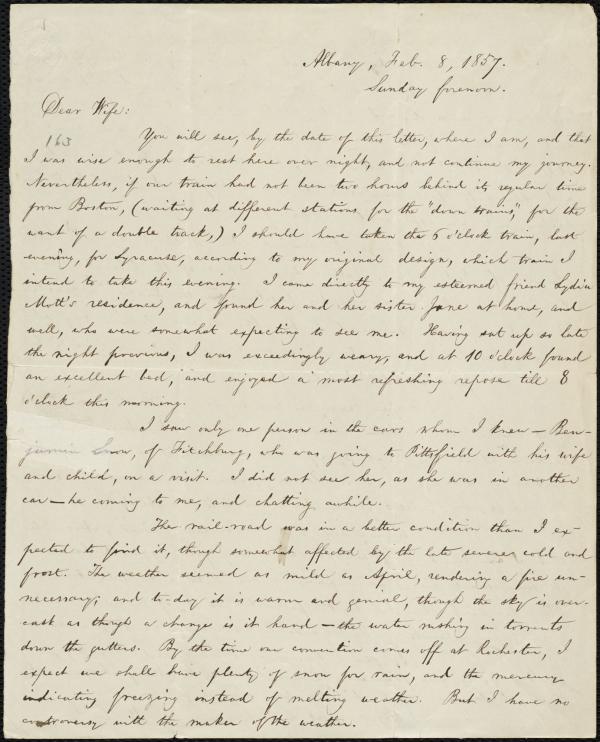 Albany, Feb. 8, 1857.
Sunday forenoon.
Dear Wife:
163
You will see, by the date of this letter, where I am, and that
I was wise enough to rest here over night, and not continue my journey.
Nevertheless, if our train had not been two hours behind its regular time
from Boston, (waiting at different stations for the "down trains," for the
want of a double track,) I should have taken the 6 o'clock train, last
evening, for Syracuse, according to my original design, which train I
intend to take this evening. I came directly to my esteemed friend Lydia
Mott's residence, and found her and her sister Jane at home, and
well, who were somewhat expecting to see me. Having sat up so late
the night previous, I was exceedingly weary, and at 10 o'clock found
an excellent bed, and enjoyed a most refreshing repose till 8
o'clock this morning.
I saw only one person in the cars whom I knew — Ben-
jamin Snow, of Fitchburg, who was going to Pittsfield with his wife
and child, on a visit. I did not see her, as she was in another
car — he coming to me, and chatting awhile.
The rail-road was in a better condition than I ex-
pected to find it, though somewhat affected by the late severe cold and
frost. The weather seemed as mild as April, rendering a fire un-
necessary; and to-day it is warm and genial, though the sky is over-
cast as though a change is at hand — the water rushing in torrents
down the gutters. By the time our convention comes off at Rochester, I
expect we shall have plenty of snow for rain, and the mercury
indicating freezing instead of melting weather. But I have no
controversy with the maker of the weather.